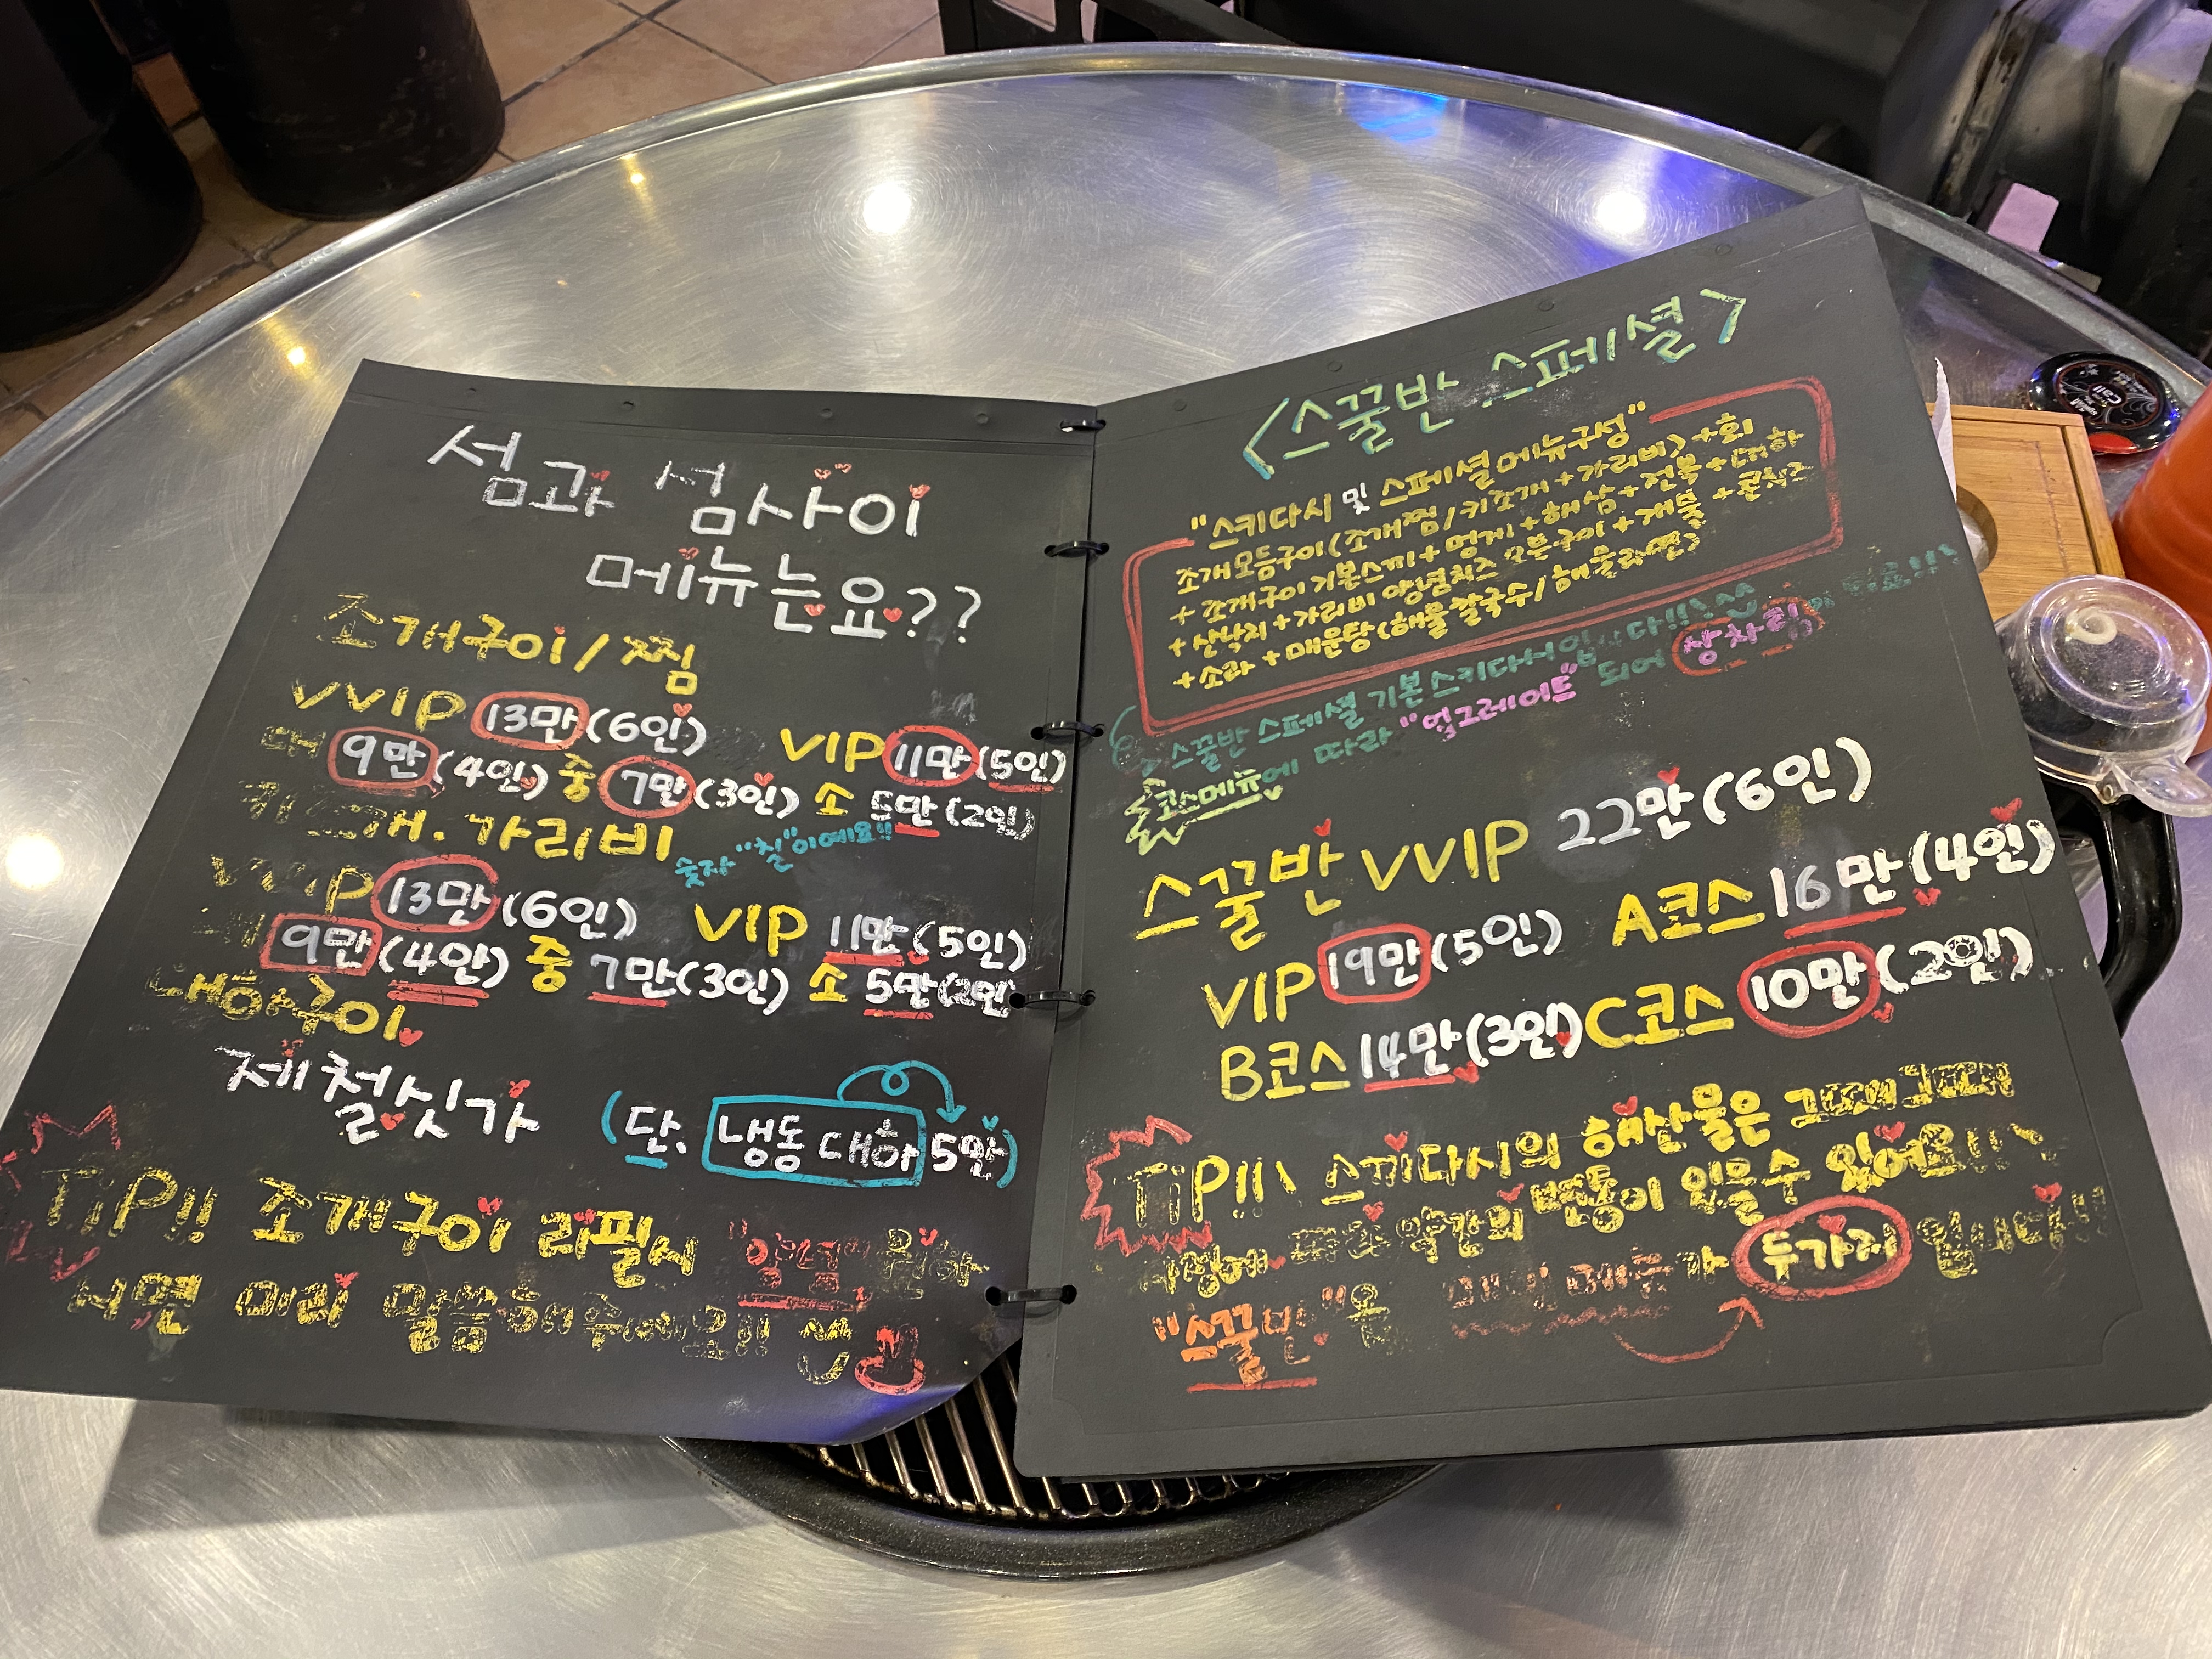 섬과 섬사이
메뉴는요??
조개구이/찜
VVIP 13만(6인) VIP 11만(5인)
대 9만(4인) 중 7만(3인) 소 5만(2인)
키조개.가리비 숫자 "칠"이에요!!
VVIP 13만(6인) VIP 11만(5인)
대 9만(4인) 중 7만(3인) 소 5만(2인)
대하구이
제철싯가 (단. 냉동 대하 5만)
TiP!! 조개구이 리필시 원하
시면 미리 말씀해주세요!!
<스꿀반 스페셜>
"스키다시 및 스페셜메뉴구성"
조개모듬구이(조개찜/키조개+가리비)+회
+조개구이 기본스끼+멍게+해삼+전복+대하
+산낙지+가리비 양념치즈 오븐구이+개불+콘치즈
+소라+매운탕(해물칼국수/해물라면)
스꿀반 스페셜 기본스키다시입니다!!
코스메뉴에 따라 "업그레이드" 되어 상차림
스꿀반 VVIP 22만(6인)
VIP 19만(5인) A코스 16만(4인)
B코스 14만(3인) C코스 10만(2인)
TiP!! 스끼다시의 해산물은 그때그때
사정에 따라 약간의 변동이 있을수 있어요!!
"스꿀반"은 메인 메뉴가 두가지 입니다!!